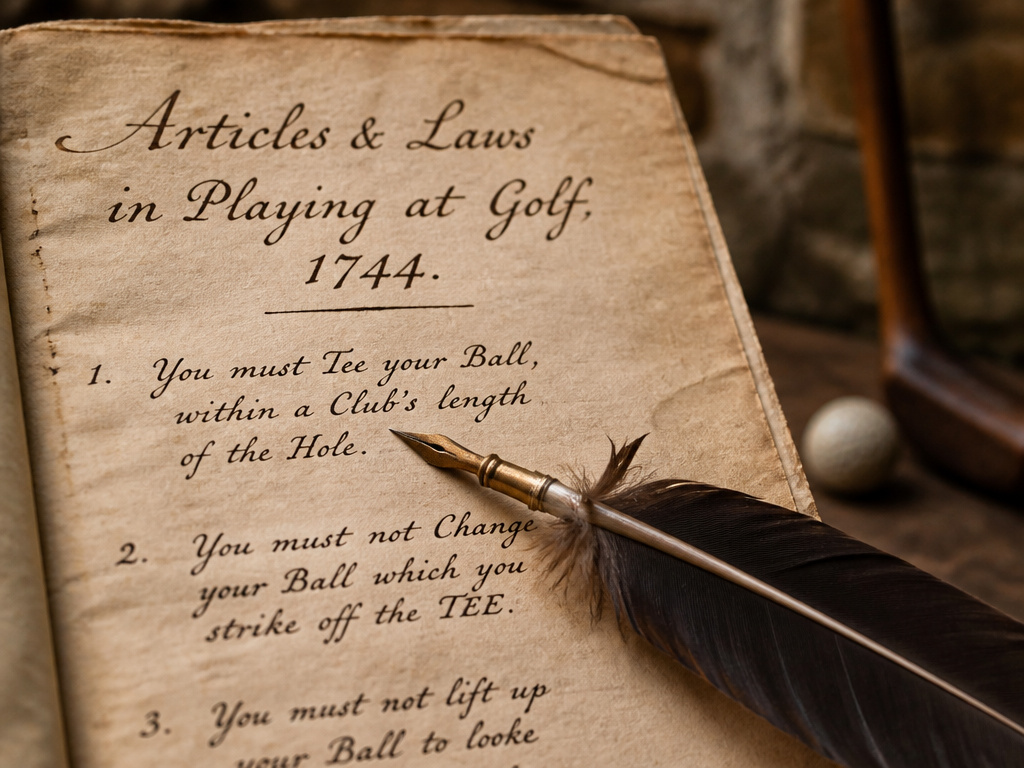 Articles & Laws
in Playing at Golf,
1744.
1. You must Tee your Ball,
within a Club's length
of the Hole.
2. You must not Change
your Ball which you
strike off the TEE.
3. You must not lift up
your Ball to looke